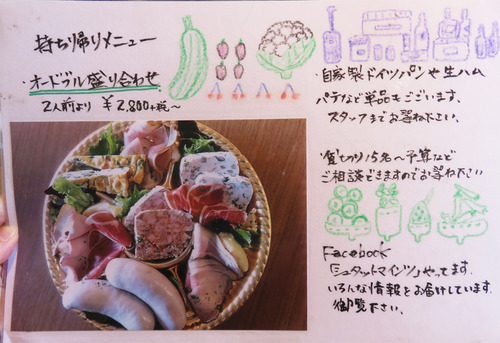 持ち帰りメニュー
・オードブル盛り合わせ
2人前より ¥2,800+税〜
・自家製ドイツパンや生ハム
パテなど単品もございます。
スタッフまでお尋ね下さい。
・貸し切り15名〜予算など
ご相談できますのでお尋ね下さい
Facebook
「シュタットマインツ」やってます。
いろんな情報をお届けしています。
御覧下さい。